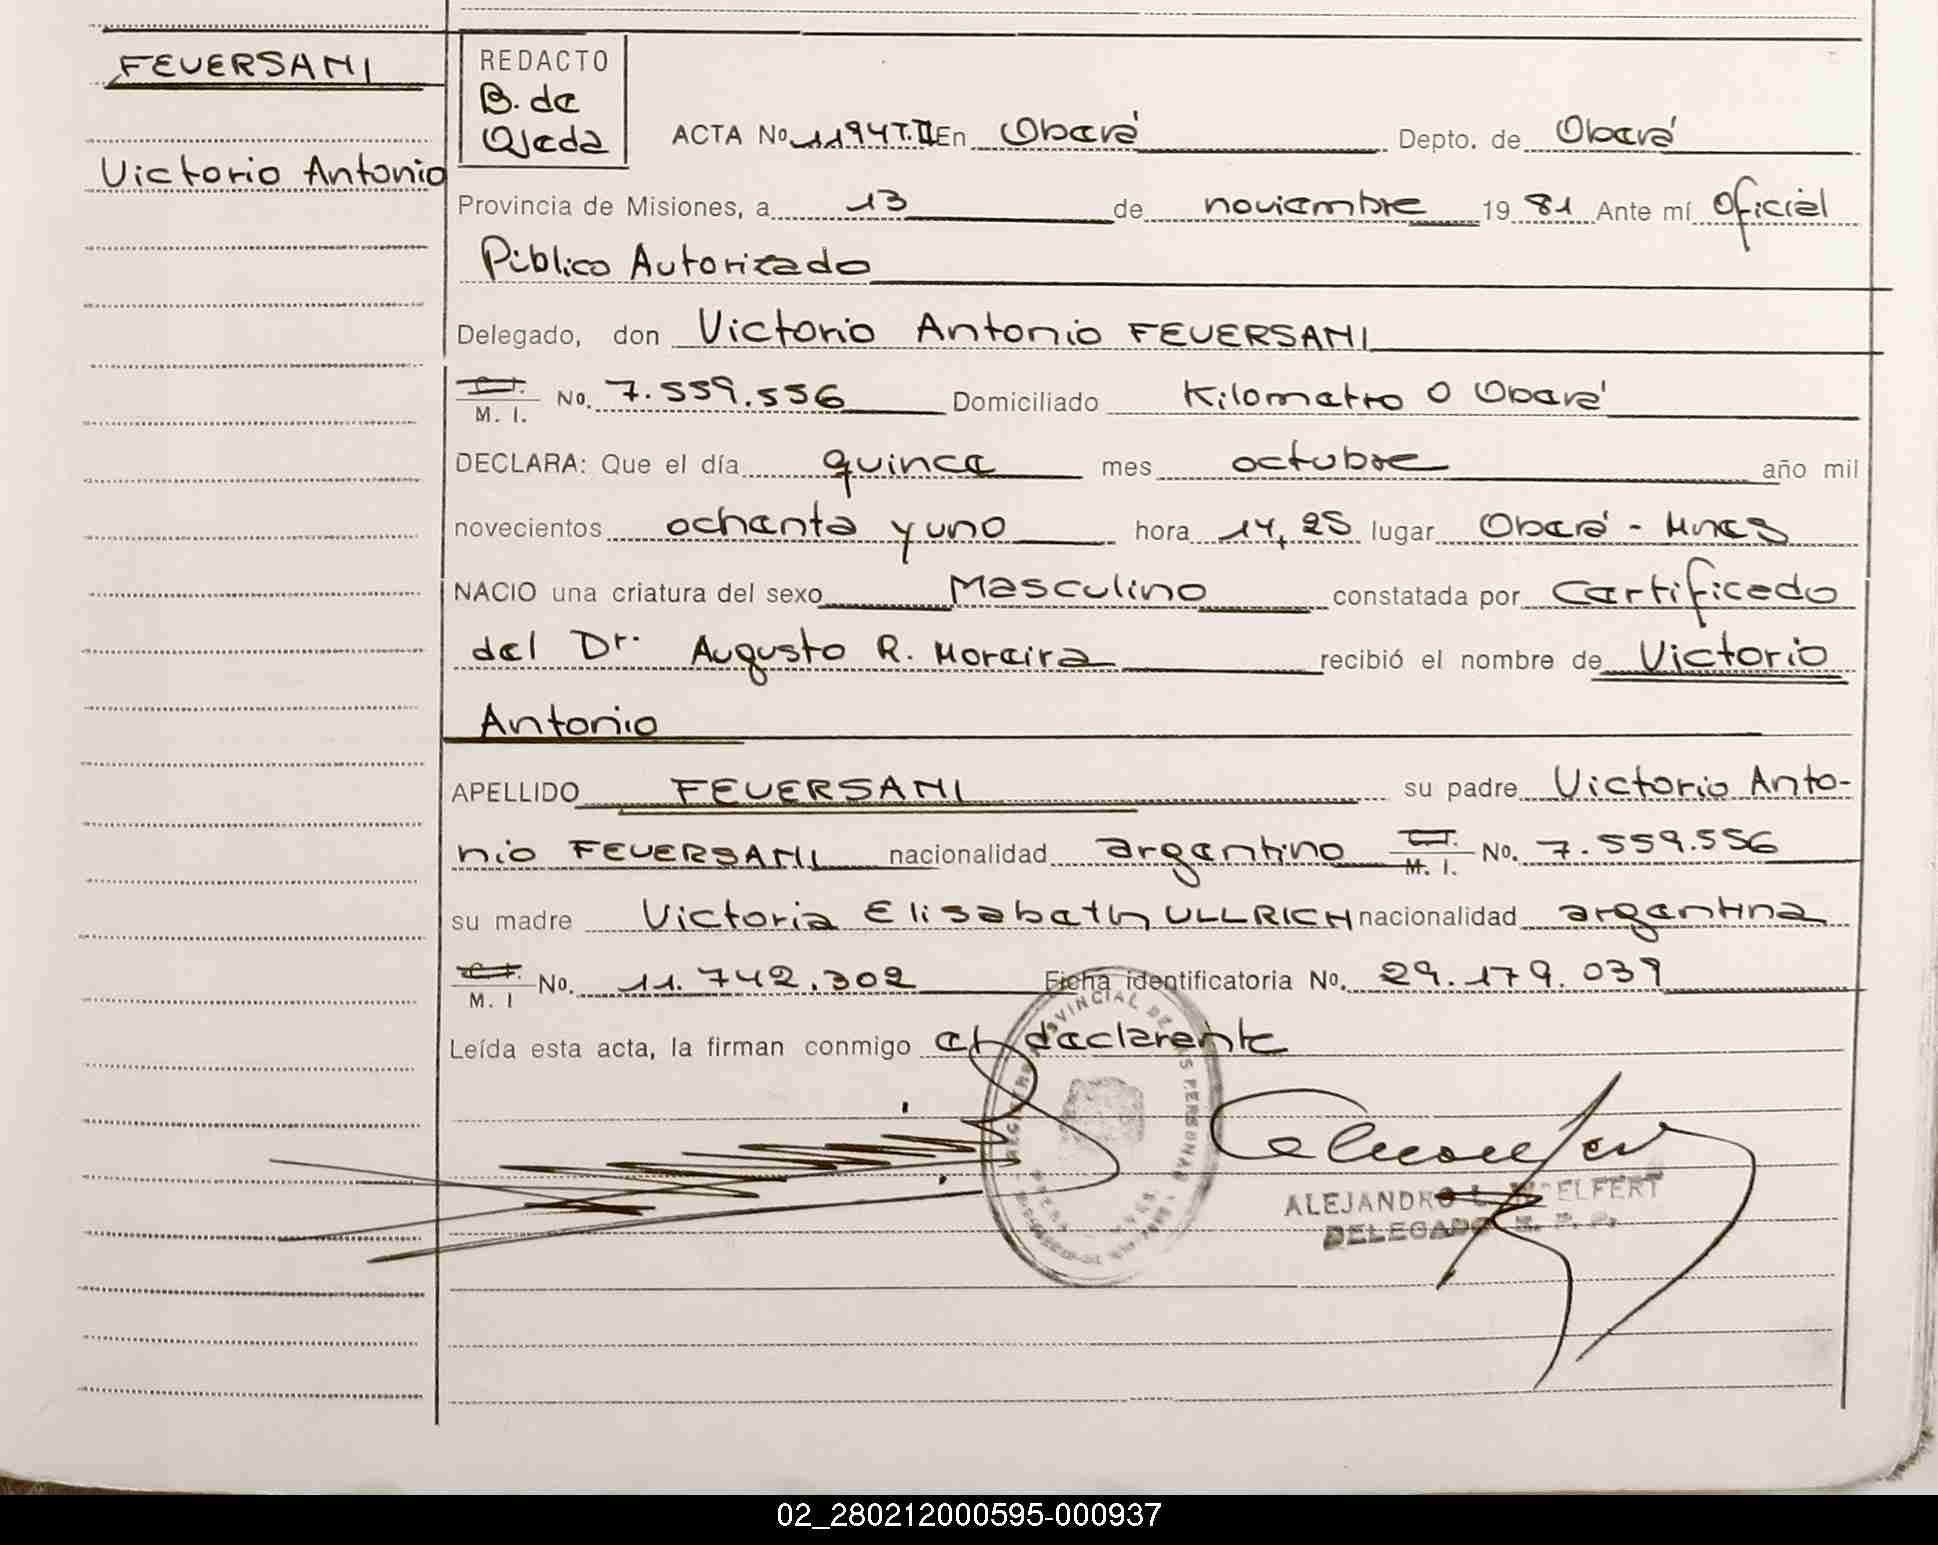 FEVERSANI
Victorio Antonio
REDACTO
B. de
Ojeda
ACTA No. 1194T.II En Oberá Depto. de Oberá
Provincia de Misiones, a 13 de noviembre 1981 Ante mí Oficial
Público Autorizado
Delegado, don Victorio Antonio FEVERSANI
C.I. M. I. No. 7.559.556 Domiciliado Kilometro 0 Oberá
DECLARA: Que el día quince mes octubre año mil
novecientos ochenta y uno hora 14,25 lugar Oberá - Mnes
NACIO una criatura del sexo Masculino constatada por Certificado
del Dr. Augusto R. Moreira recibió el nombre de Victorio
Antonio
APELLIDO FEVERSANI su padre Victorio Anto-
nio FEVERSANI nacionalidad argentino C.I. M. I. No. 7.559.556
su madre Victoria Elisabeth ULLRICH nacionalidad argentina
C.I. M. I No. 11.742.302 Ficha identificatoria No. 29.179.039
Leída esta acta, la firman conmigo el declarante
PROVINCIAL DE LAS PERSONAS
ALEJANDRO L.
DELEGADO R. P. P.
02_280212000595-000937